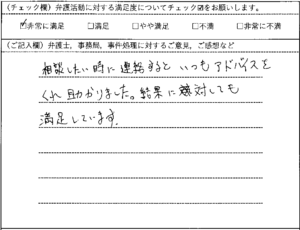 (チェック欄)弁護活動に対する満足度についてチェック☑をお願いします。
☑非常に満足 □満足 □やや満足 □不満 □非常に不満
(ご記入欄)弁護士、事務局、事件処理に対するご意見、ご感想など
相談したい時に連絡すると いつもアドバイスを
くれ助かりました。結果に対しても
満足しています。